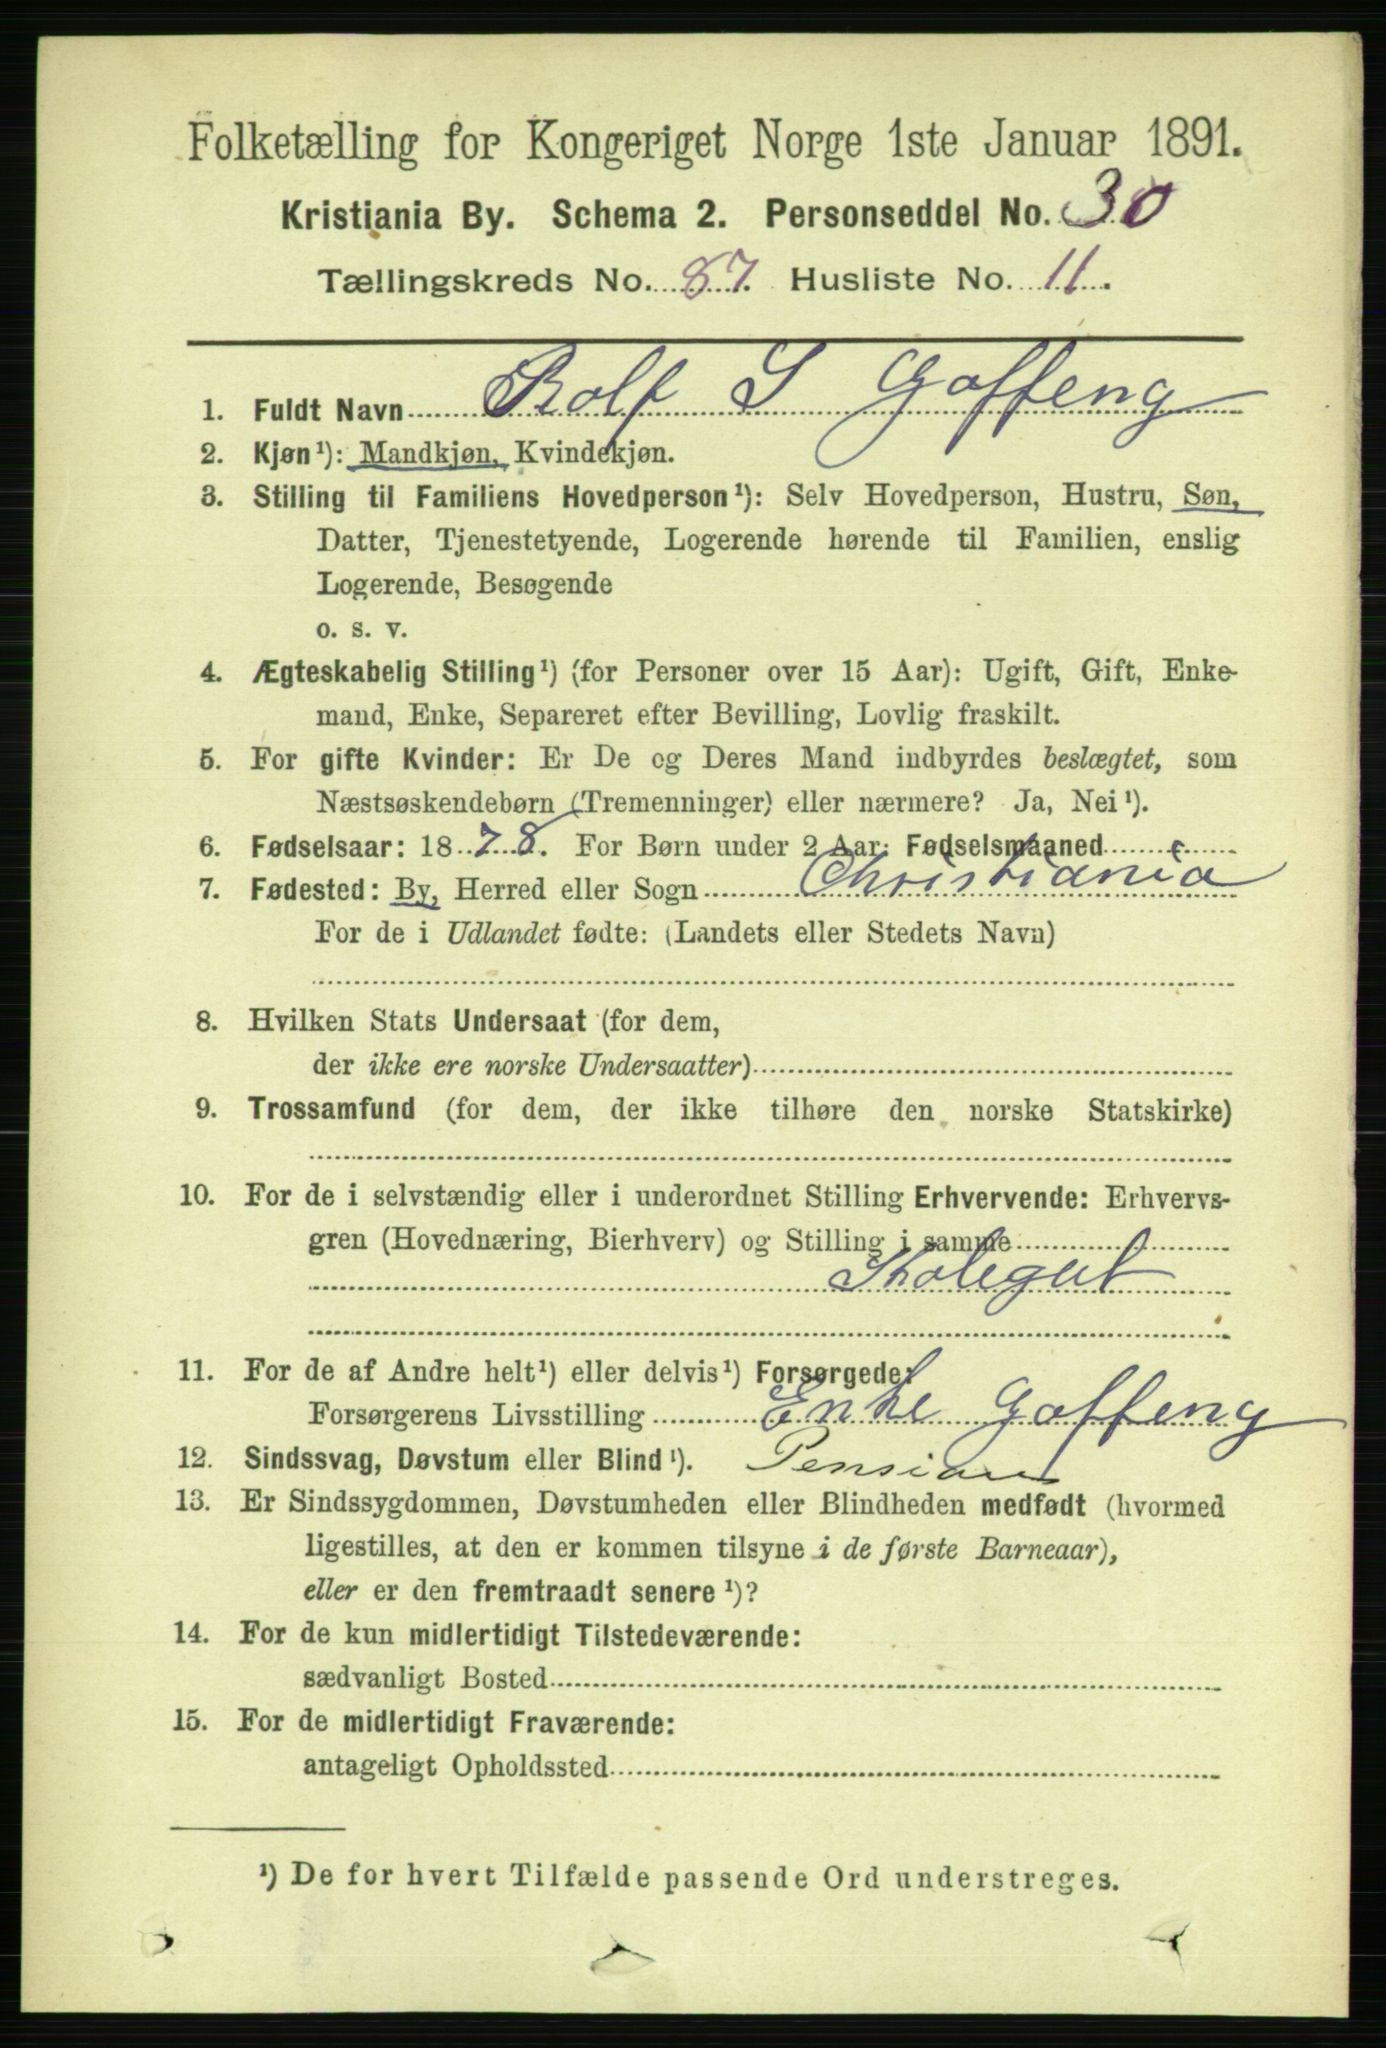 Folketælling for Kongeriget Norge 1ste Januar 1891.
Kristiania By. Schema 2. Personseddel No. 30
Tællingskreds No. 87. Husliste No. 11.
1. Fuldt Navn Rolf S Gaffeng
2. Kjøn¹): Mandkjøn, Kvindekjøn.
3. Stilling til Familiens Hovedperson¹): Selv Hovedperson, Hustru, Søn,
Datter, Tjenestetyende, Logerende hørende til Familien, enslig
Logerende, Besøgende
o. s. v.
4. Ægteskabelig Stilling¹) (for Personer over 15 Aar): Ugift, Gift, Enke-
mand, Enke, Separeret efter Bevilling, Lovlig fraskilt.
5. For gifte Kvinder: Er De og Deres Mand indbyrdes beslægtet, som
Næstsøskendebørn (Tremenninger) eller nærmere? Ja, Nei¹).
6. Fødselsaar: 1878. For Børn under 2 Aar: Fødselsmaaned
7. Fødested: By, Herred eller Sogn Christiania
For de i Udlandet fødte: (Landets eller Stedets Navn)
8. Hvilken Stats Undersaat (for dem,
der ikke ere norske Undersaatter)
9. Trossamfund (for dem, der ikke tilhøre den norske Statskirke)
10. For de i selvstændig eller i underordnet Stilling Erhvervende: Erhvervs-
gren (Hovednæring, Bierhverv) og Stilling i samme
Skolegut
11. For de af Andre helt¹) eller delvis¹) Forsørgede:
Forsørgerens Livsstilling Enke Gaffeng
12. Sindssvag, Døvstum eller Blind¹). Pension
13. Er Sindssygdommen, Døvstumheden eller Blindheden medfødt (hvormed
ligestilles, at den er kommen tilsyne i de første Barneaar),
eller er den fremtraadt senere¹)?
14. For de kun midlertidigt Tilstedeværende:
sædvanligt Bosted
15. For de midlertidigt Fraværende:
antageligt Opholdssted
¹) De for hvert Tilfælde passende Ord understreges.